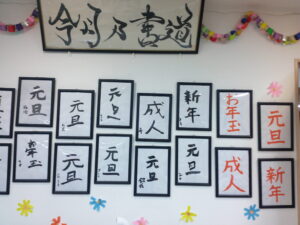 今月乃書道
元旦 元旦 元旦 成人 新年 お年玉 元旦
お年玉 元旦 元旦 元旦 元旦 成人 新年